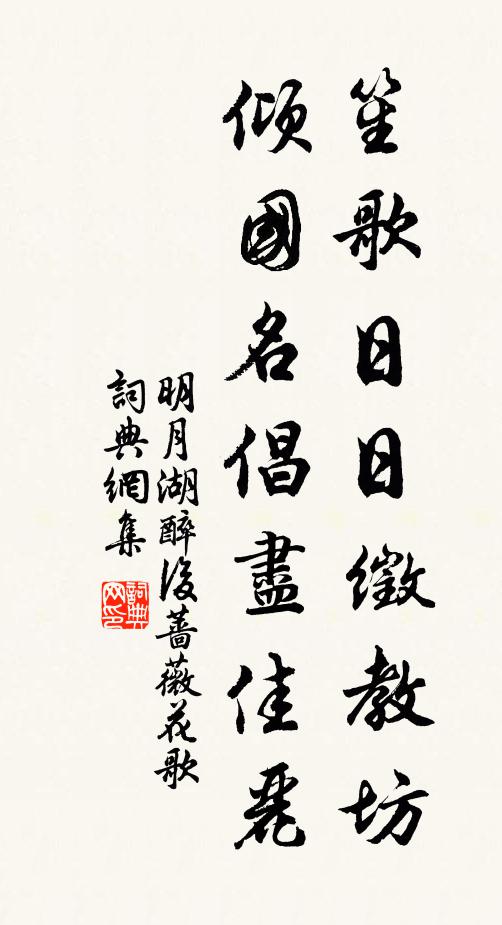 笙歌日日徵教坊
傾國名倡盡佳麗
明月湖醉後薔薇花歌
詞典網集
詞典网印